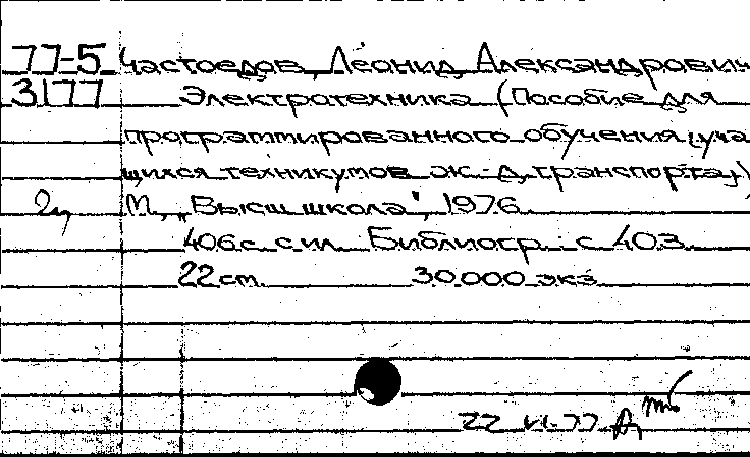 77-5 Частоедов, Леонид Александрович
3177 Электротехника (Пособие для
программированного обучения уча
щихся техникумов ж.-д. транспорта)
М., „Высш. школа", 1976.
406 с. с ил. Библиогр.: с. 403.
22 см. 30.000 экз.
22 VI-77